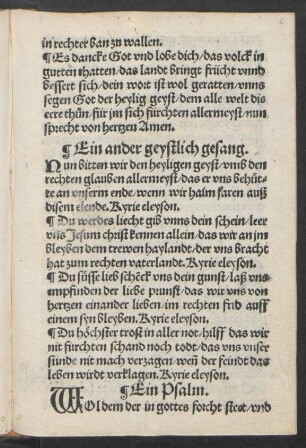 in rechter ban zu wallen.
¶ Es dancke Got vnd lobe dich / das volck in
gutten thatten / das landt bringt frücht vnnd
bessert sich / dein wort ist wol geratten / vnns
segen Got der heylig geyst / dem alle welt die
eere thün / für jm sich fürchten allermeyst / nun
sprecht von hertzen Amen.
¶ Ein ander geystlich gesang.
Nun bitten wir den heyligen geyst / vmb den
rechten glauben allermeyst / das er vns behüt-
te an vnserm ende / wenn wir haim faren auß
disem elende. Kyrie eleyson.
¶ Du werdes liecht gib vnns dein schein / leer
vns Jesum christ kennen allein / das wir an jm
bleyben dem trewen haylandt / der vns bracht
hat zum rechten vaterlandt. Kyrie eleyson.
¶ Du süsse lieb schēck vns dein gunst / laß vns
empfinden der liebe prunst / das wir vns von
hertzen einander lieben / im rechten frid auff
einem syn bleyben. Kyrie eleyson.
¶ Du höchster trost in aller not / hilff das wir
nit fürchten schand noch todt / das vns vnser
sünde nit mach verzagen / weñ der feindt das
leben wirdt verklagen. Kyrie eleyson.
¶ Ein Psalm.
WOl dem der in gottes forcht steet / vnd